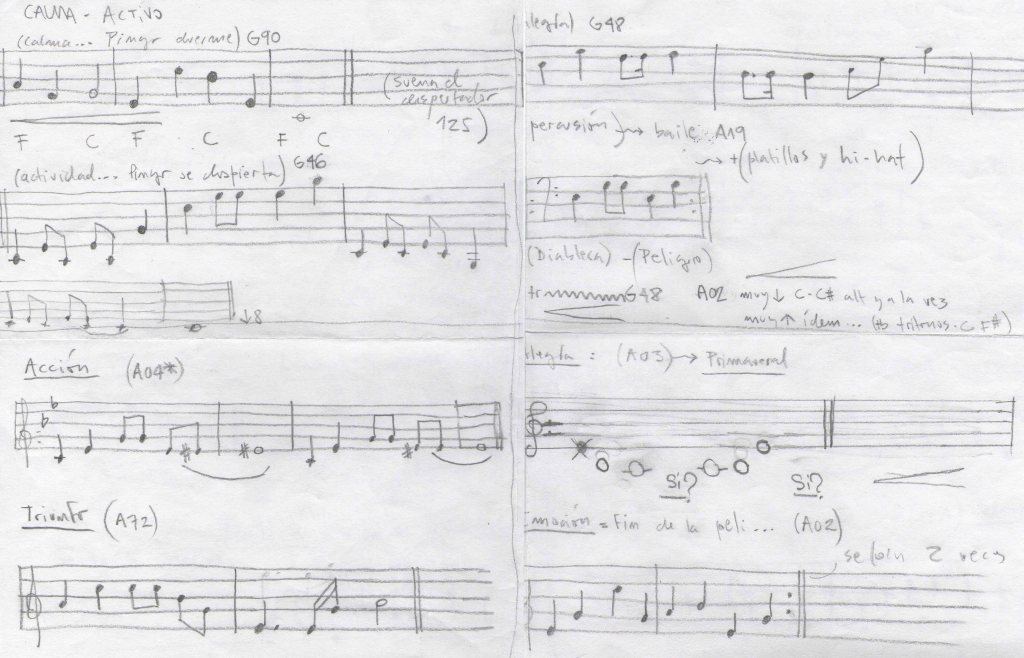 CALMA - ACTIVO
(calma... Pingu duerme) G90
(suena el
despertador
125)
F C F C F C
(actividad... Pingu se despierta) G46
↓8
Acción (A04*)
Triunfo (A72)
alegría) G48
percusión) → baile A19
→ + (platillos y hi-hat)
(Diableca) - (Peligro)
tr G48 A02 muy ↓ C-C# alt y a la vez
muy ↑ ídem... (tritonos - C F#)
alegría : (A03) → Primaveral
Si? Si?
Emoción = Fin de la peli... (A02)
2 veces